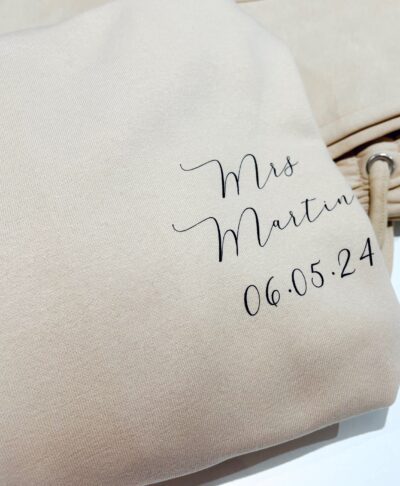 Mrs
Martin
06.05.24